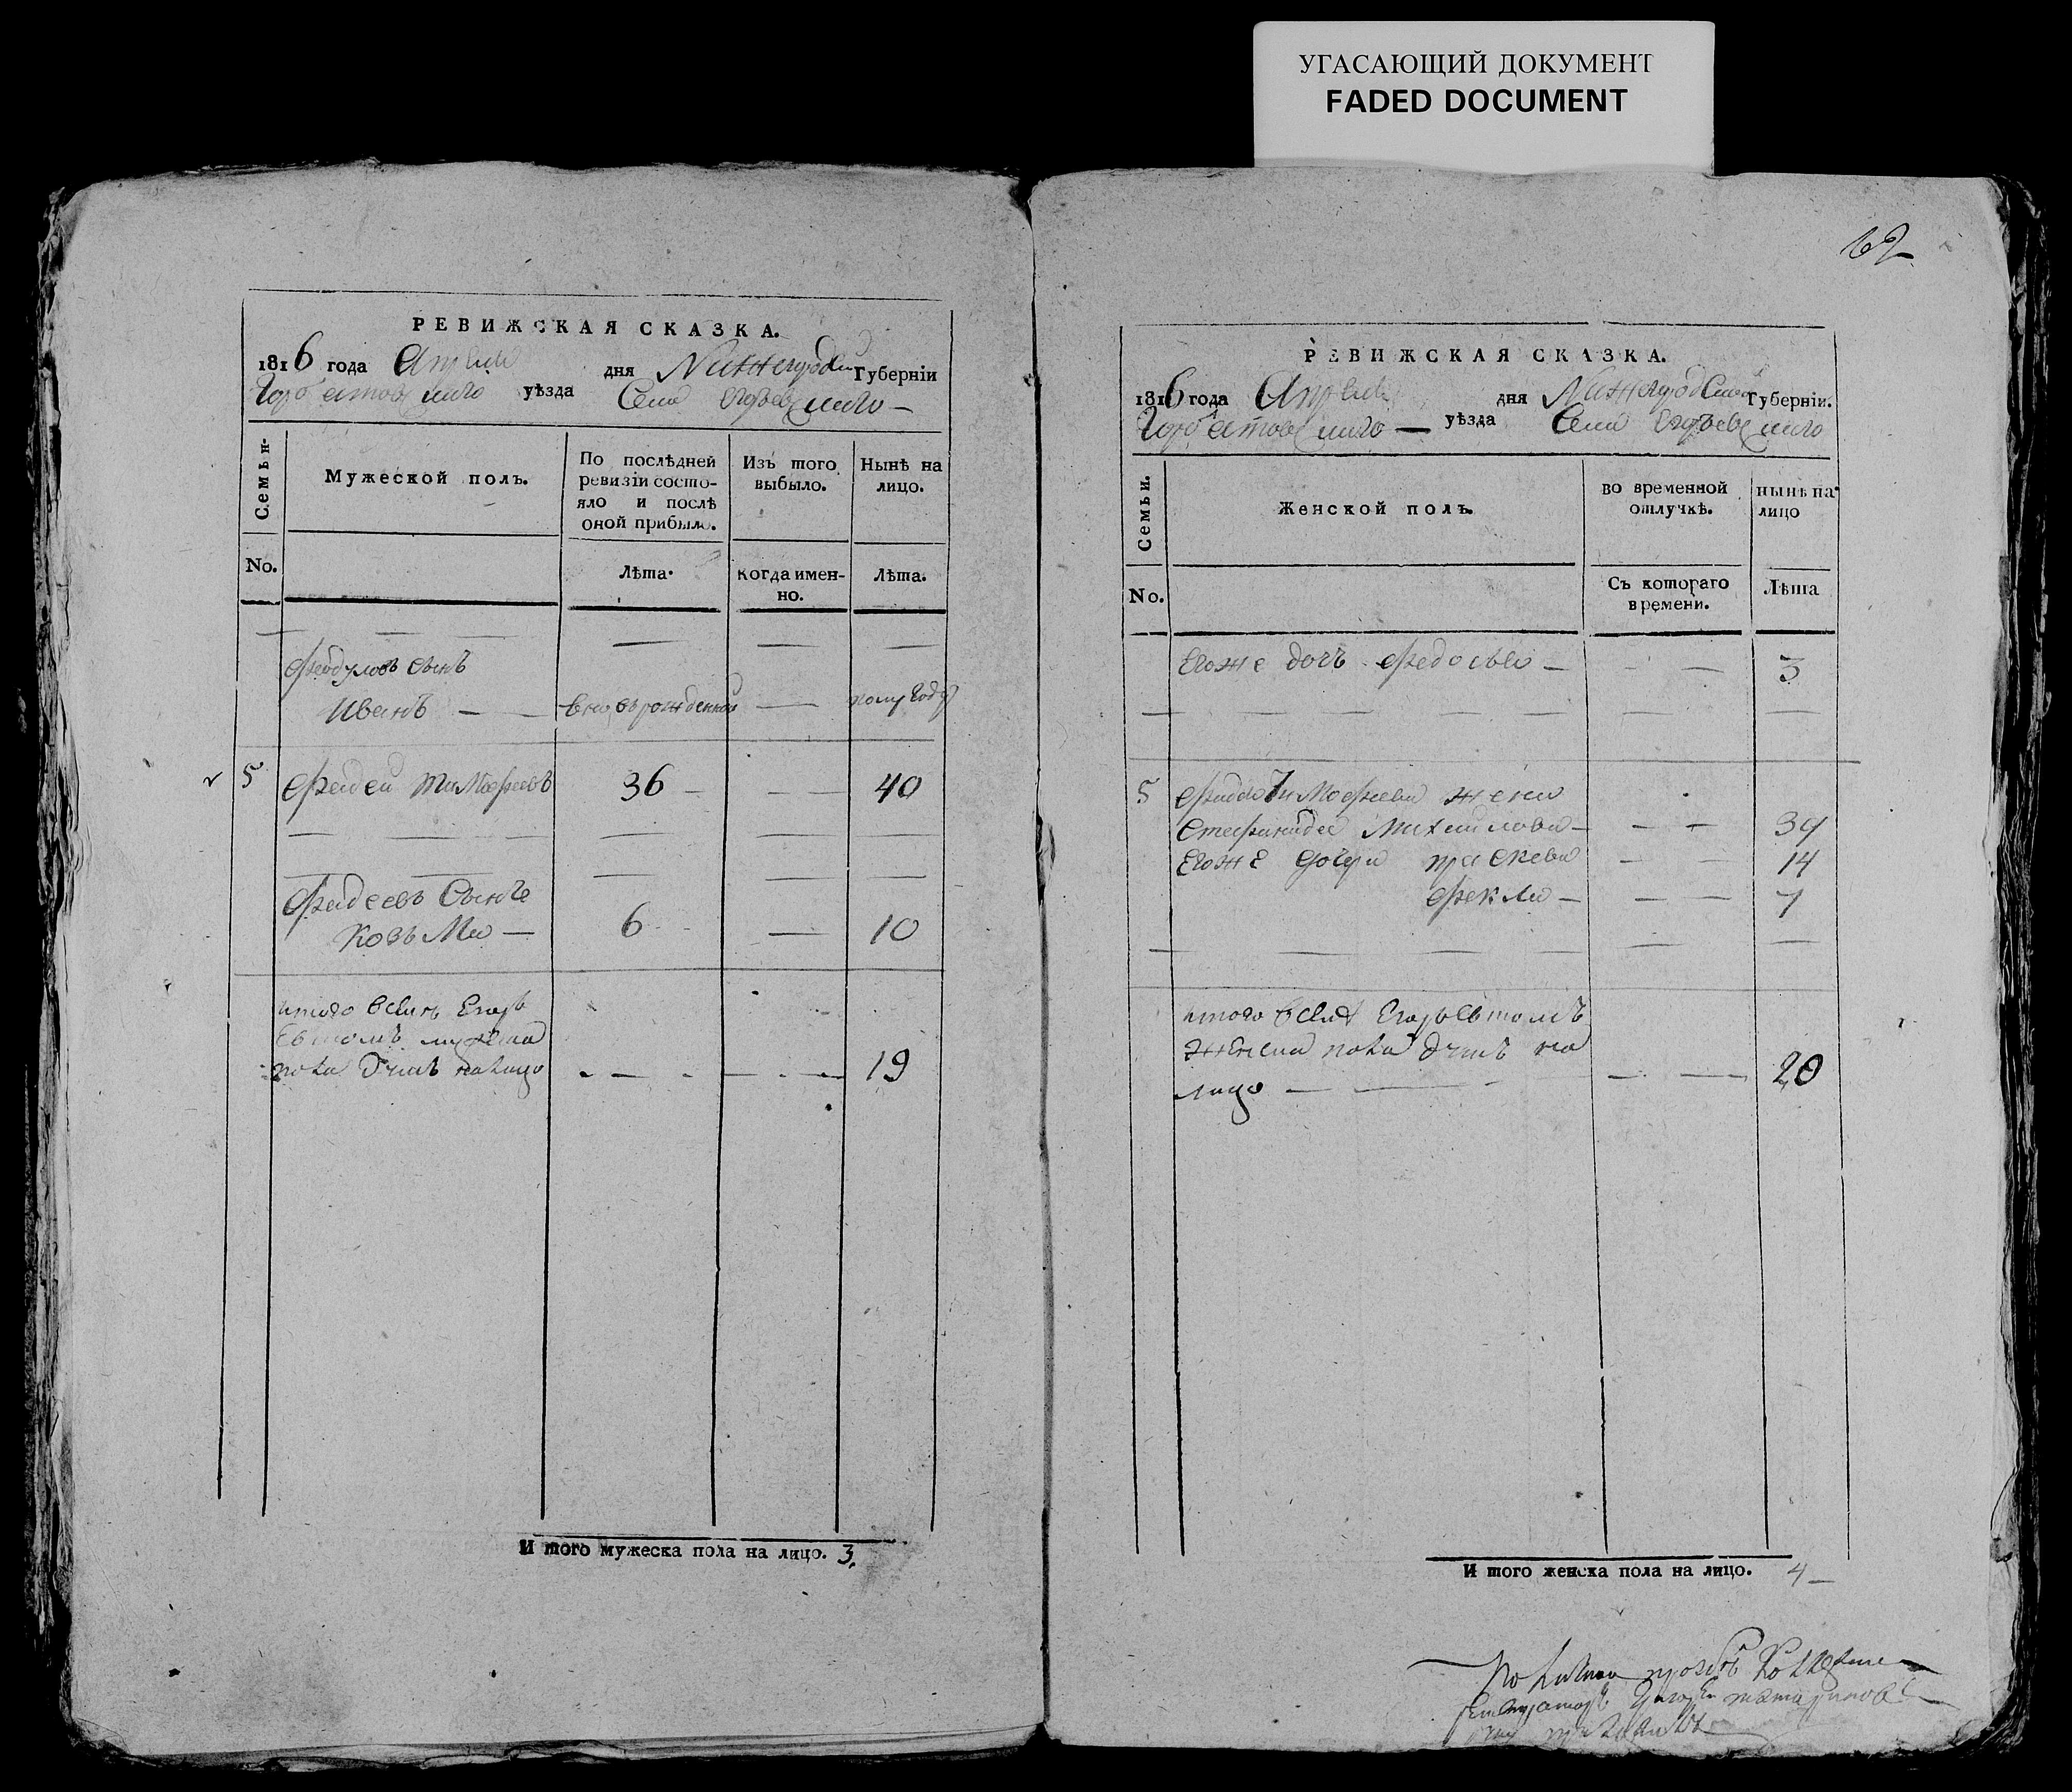 УГАСАЮЩИЙ ДОКУМЕНТ
FADED DOCUMENT
РЕВИЖСКАЯ СКАЗКА.
1816 года Апреля дня Нижегородской Губерніи
Горбатовскаго уѣзда Села Егорьевскаго
Семьи.
Мужеской полъ.
По послѣдней ревизіи состояло и послѣ оной прибыло.
Изъ того выбыло.
Нынѣ на лицо.
No.
Лѣта.
Когда именно.
Лѣта.
Феодуловъ сынъ
Иванъ — вновърожденной — полугоду
5 Фадей Тимофеевъ 36 — 40
Фадеевъ сынъ
Козьма — 6 — 10
итого в селѣ Егорь
евскомъ мужеска
пола душъ налицо 19
И того мужеска пола на лицо. 3.
62
РЕВИЖСКАЯ СКАЗКА.
1816 года Апреля дня Нижегородской Губерніи.
Горбатовскаго — уѣзда Села Егорьевскаго
Семьи.
Женской полъ.
во временной отлучкѣ.
нынѣ на лицо
No.
Съ котораго времени.
Лѣта
Егоже дочь Федосья — 3
5 Фадея Тимофеева жена
Степанида Михайлова — 39
Егоже дочери Праскева 14
Фекла — 7
итого в селѣ Егорьевскомъ
женска пола душъ на
лицо — 20
И того женска пола на лицо. 4